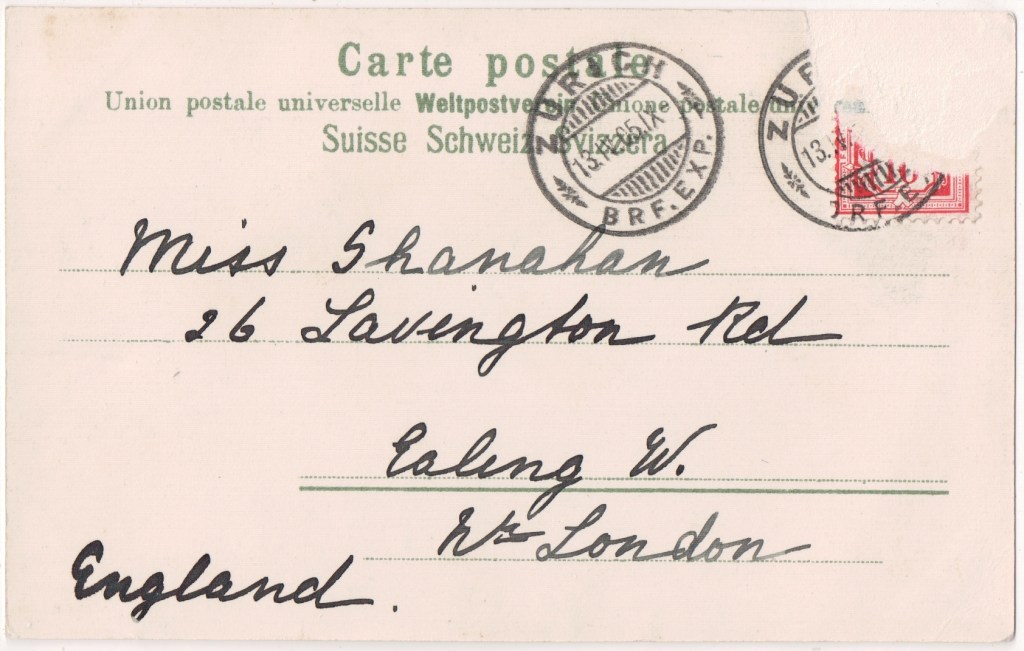 Carte postale
Union postale universelle Weltpostverein Unione postale
Suisse Schweiz Svizzera
ZÜRICH
BRF. EXP.
Miss Shanahan
26 Lavington Rd
Ealing W.
Nr London
England.